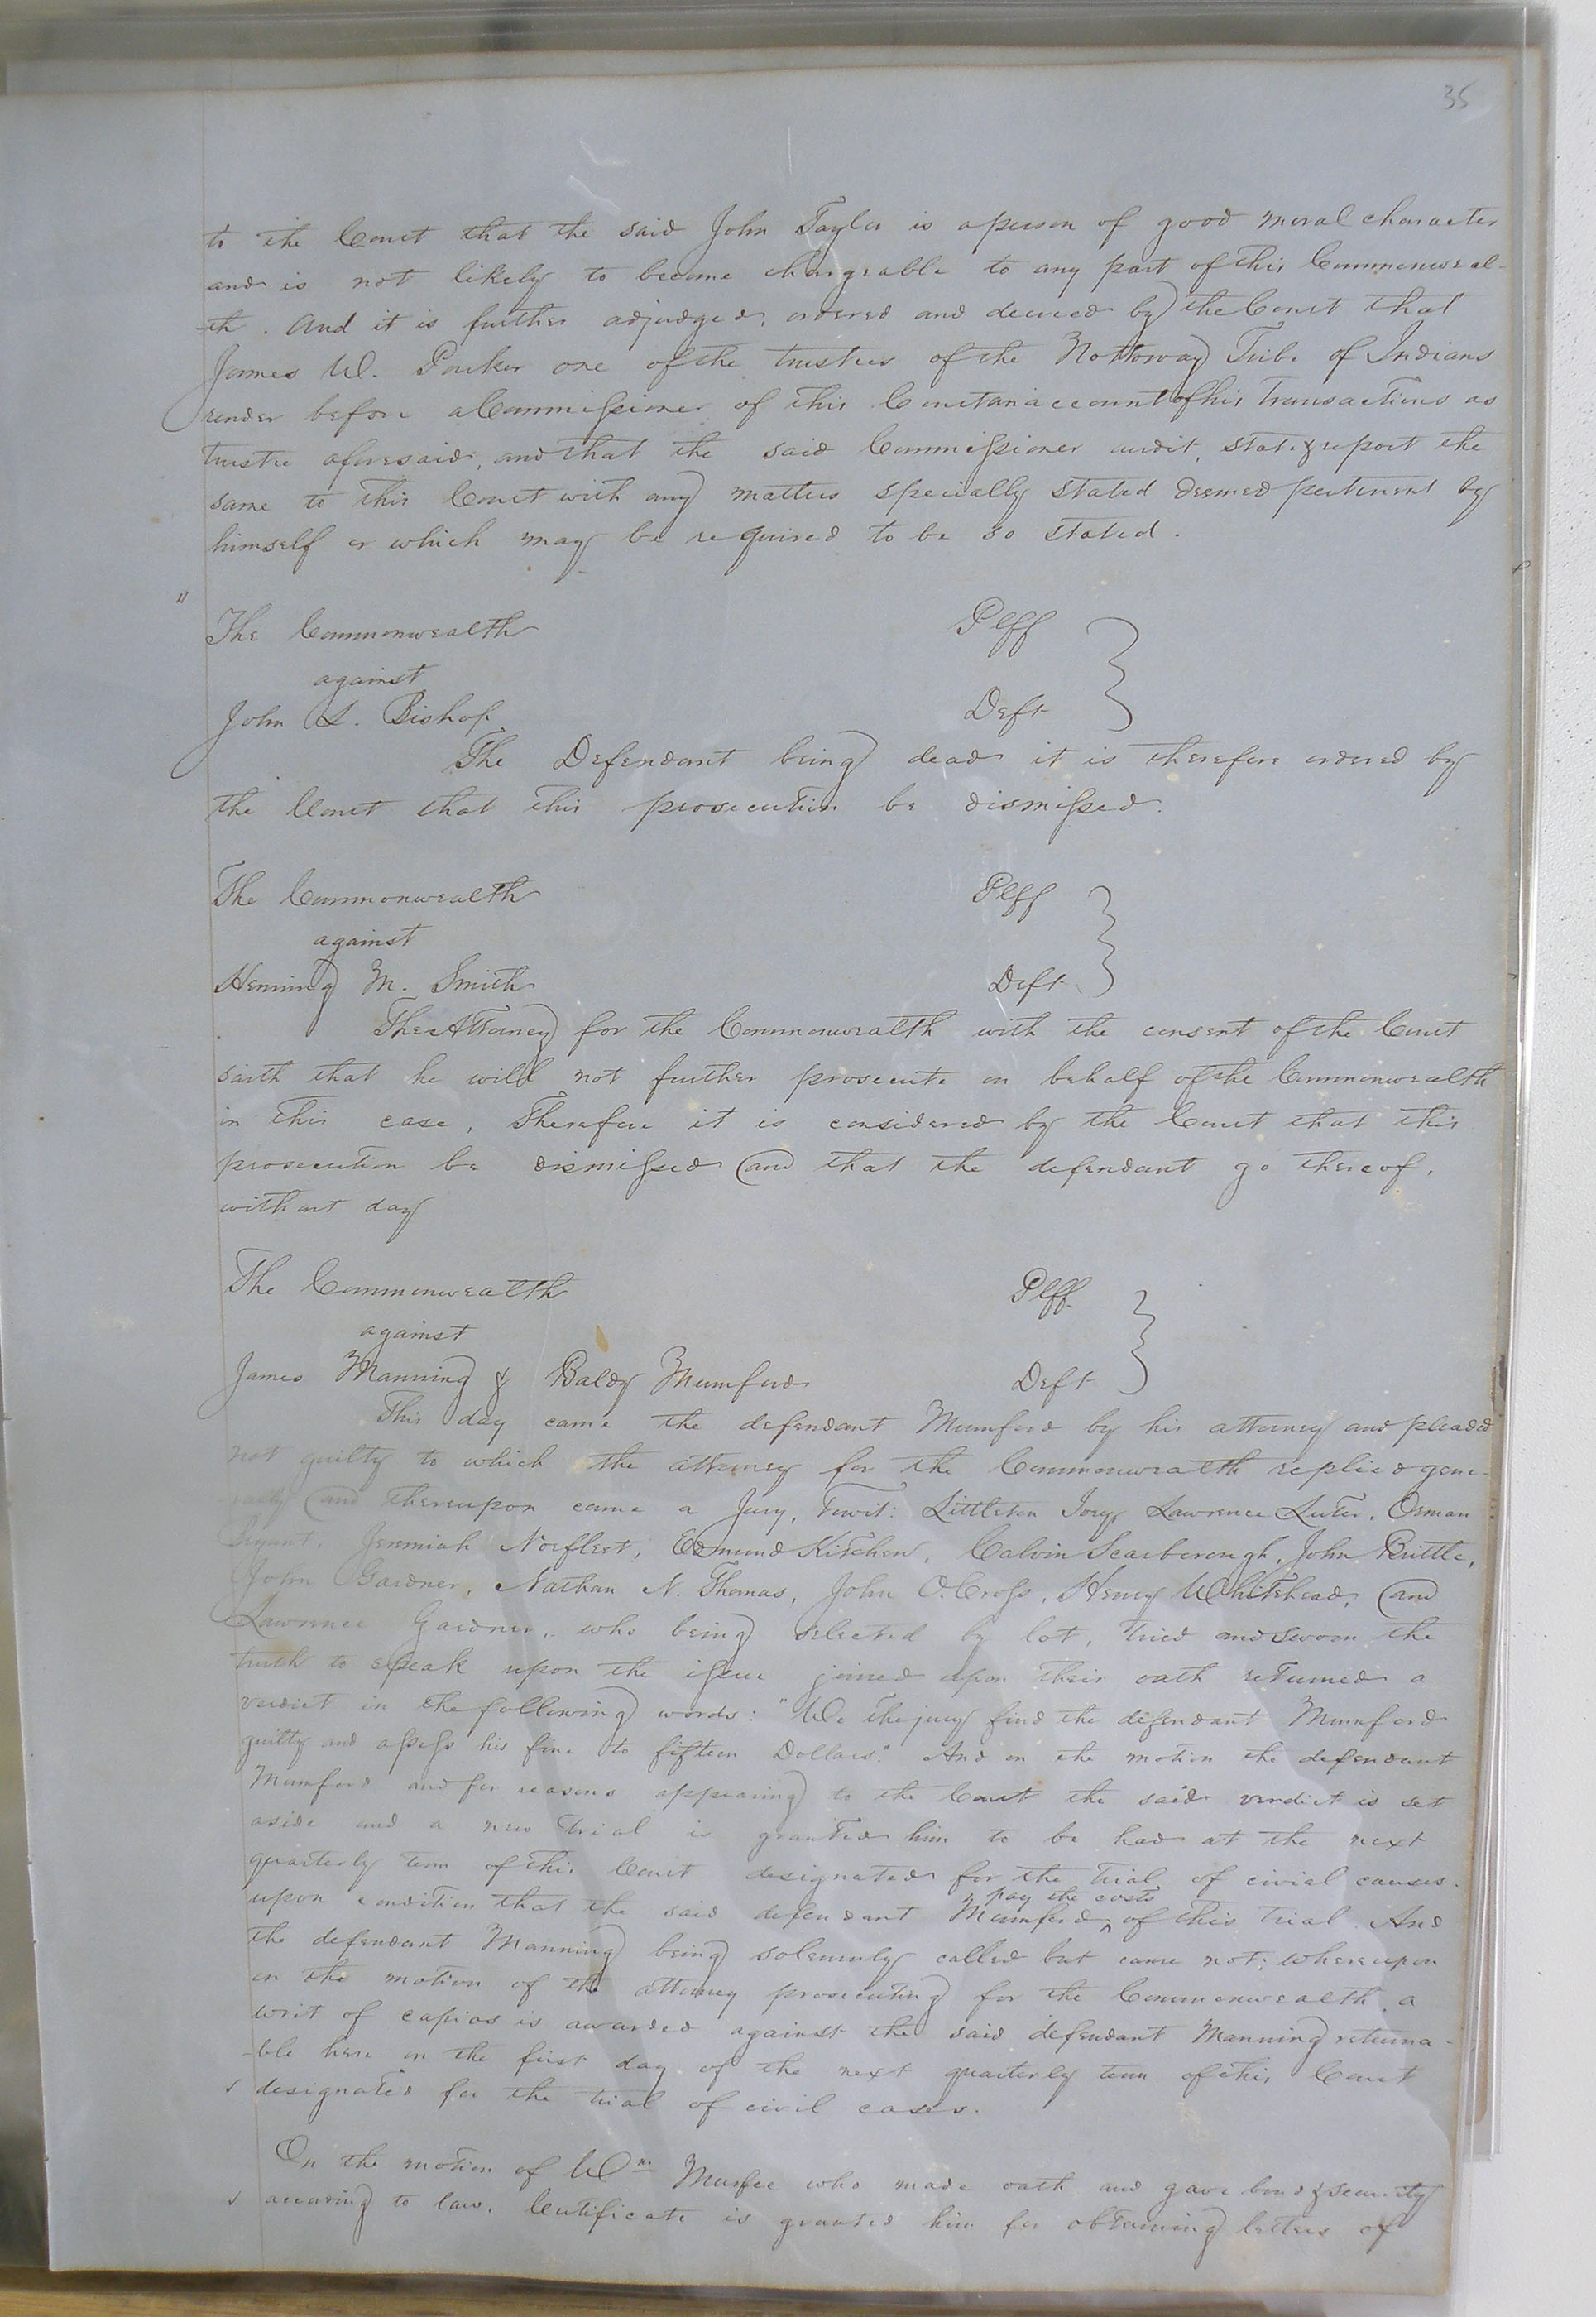 35
to the Court that the said John Taylor is a person of good moral character
and is not likely to become chargeable to any part of this Commonweal-
-th. And it is further adjudged, ordered and decreed by the Court that
James W. Parker one of the trustees of the Nottoway Tribe of Indians
render before a Commissioner of this Court an account of his transactions as
trustee aforesaid, and that the said Commissioner audit, state & report the
same to this Court with any matters specially stated deemed pertinent by
himself or which may be required to be so stated.
"
The Commonwealth Plff
against
John L. Bishop Deft
The Defendant being dead it is therefore ordered by
the Court that this prosecution be dismissed.
The Commonwealth Plff
against
Henning M. Smith Deft
The Attorney for the Commonwealth with the consent of the Court
saith that he will not further prosecute on behalf of the Commonwealth
in this case, Therefore it is considered by the Court that this
prosecution be dismissed and that the defendant go thereof,
without day
The Commonwealth Plff.
against
James Manning & Baldy Mumford Deft
This day came the defendant Mumford by his attorney and pleaded
not guilty to which the attorney for the Commonwealth replied gene-
-rally and thereupon came a Jury, Towit: Littleton Lawrence Luter, Orman
Bryant, Jeremiah Norfleet, Edmund Kitchen, Calvin Scarborough, John Brittle,
John Gardner, Nathan N. Thomas, John O. Cross, Henry Whitehead, and
Lawrence Gardner, who being selected by lot, tried and sworn the
truth to speak upon the issue joined upon their oath returned a
verdict in the following words: "We the jury find the defendant Mumford
guilty and assess his fine to fifteen Dollars." And on the motion the defendant
Mumford and for reasons appearing to the Court the said verdict is set
aside and a new trial is granted him to be had at the next
quarterly term of this Court designated for the trial of civial causes.
upon condition that the said defendant Mumford pay the costs of this trial And
the defendant Manning being solemnly called but came not; whereupon
on the motion of the attorney prosecuting for the Commonwealth, a
writ of capias is awarded against the said defendant Manning returna-
-ble here on the first day of the next quarterly term of this Court
designated for the trial of civil cases.
On the motion of Wm Murfee who made oath and gave bond & security
according to law. Certificate is granted him for obtaining letters of